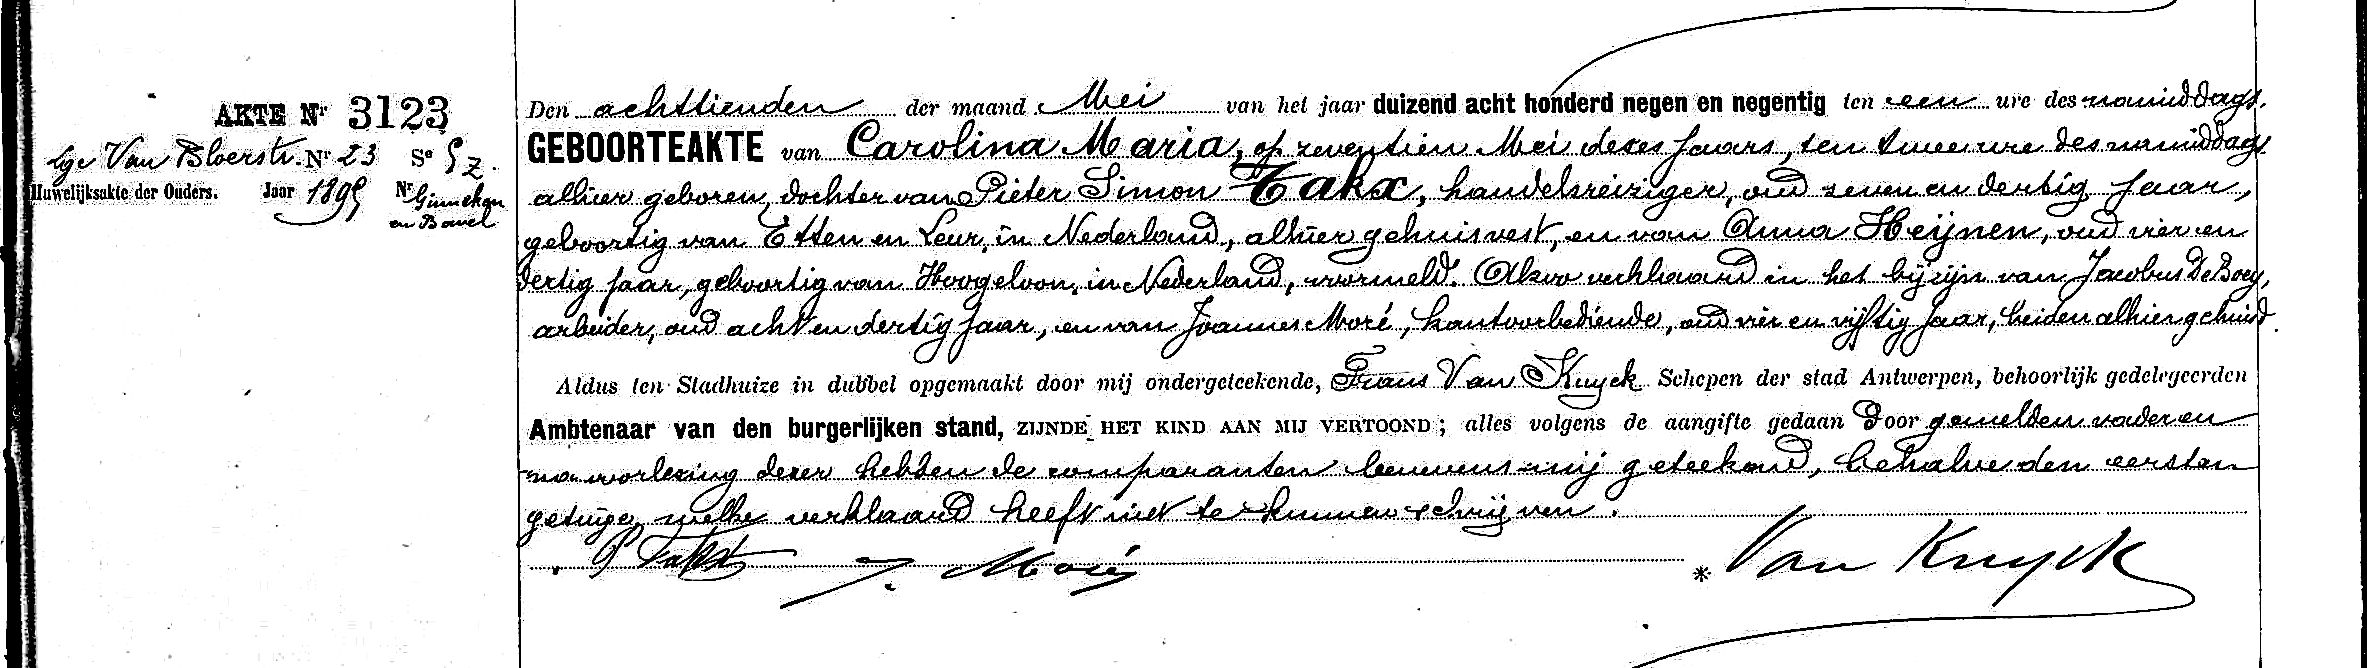 AKTE Nr 3123
lge Van Bloerstr. Nr 23 Se 5 Z.
Huwelijksakte der Ouders. Jaar 1895 Nr Ginneken
en Bavel
Den achttienden der maand Mei van het jaar duizend acht honderd negen en negentig ten een ure des namiddags.
GEBOORTEAKTE van Carolina Maria, op zeventien Mei dezes jaars, ten twee ure des namiddags
alhier geboren, dochter van Pieter Simon Takx, handelsreiziger, oud zeven en dertig jaar,
geboortig van Etten en Leur, in Nederland, alhier gehuisvest, en van Anna Heijnen, oud vier en
dertig jaar, geboortig van Hoogeloon, in Nederland, voormeld. Akvo verklaard in het bijzijn van Jacobus De Boey,
arbeider, oud acht en dertig jaar, en van Joannes Moré, kantoorbediende, oud vier en vijftig jaar, beiden alhier gehuisd.
Aldus ten Stadhuize in dubbel opgemaakt door mij ondergeteekende, Frans Van Kuyck Schepen der stad Antwerpen, behoorlijk gedelegeerden
Ambtenaar van den burgerlijken stand, ZIJNDE HET KIND AAN MIJ VERTOOND; alles volgens de aangifte gedaan door gemelden vader en
na voorlezing dezer hebben de comparanten benevens mij geteekend, behalve den eersten
getuige, welke verklaard heeft niet te kunnen schrijven.
P Takx J. Moré * Van Kuyck